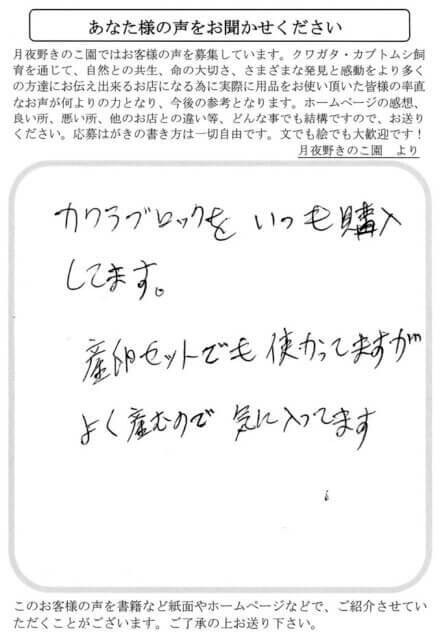 あなた様の声をお聞かせください
月夜野きのこ園ではお客様の声を募集しています。クワガタ・カブトムシ飼
育を通じて、自然との共生、命の大切さ、さまざまな発見と感動をより多く
の方達にお伝え出来るお店になる為に実際に用品をお使い頂いた皆様の率直
なお声が何よりの力となり、今後の参考となります。ホームページの感想、
良い所、悪い所、他のお店との違い等、どんな事でも結構ですので、お送り
ください。応募はがきの書き方は一切自由です。文でも絵でも大歓迎です！
月夜野きのこ園　より
カワラブロックを いつも購入
してます。
産卵セットでも 使かってますが
よく産むので 気に入ってます
このお客様の声を書籍など紙面やホームページなどで、ご紹介させてい
ただくことがございます。ご了承の上お送り下さい。